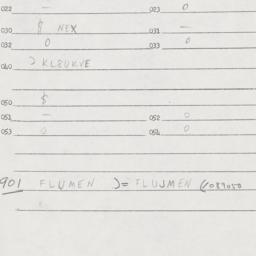 022 — 023 0
030 $ NEX 031 —
032 0 033 0
040 KLBUKVE
050 $
051 — 052 0
053 0 054 0
901 FLUMEN )= FLUJMEN (/089050